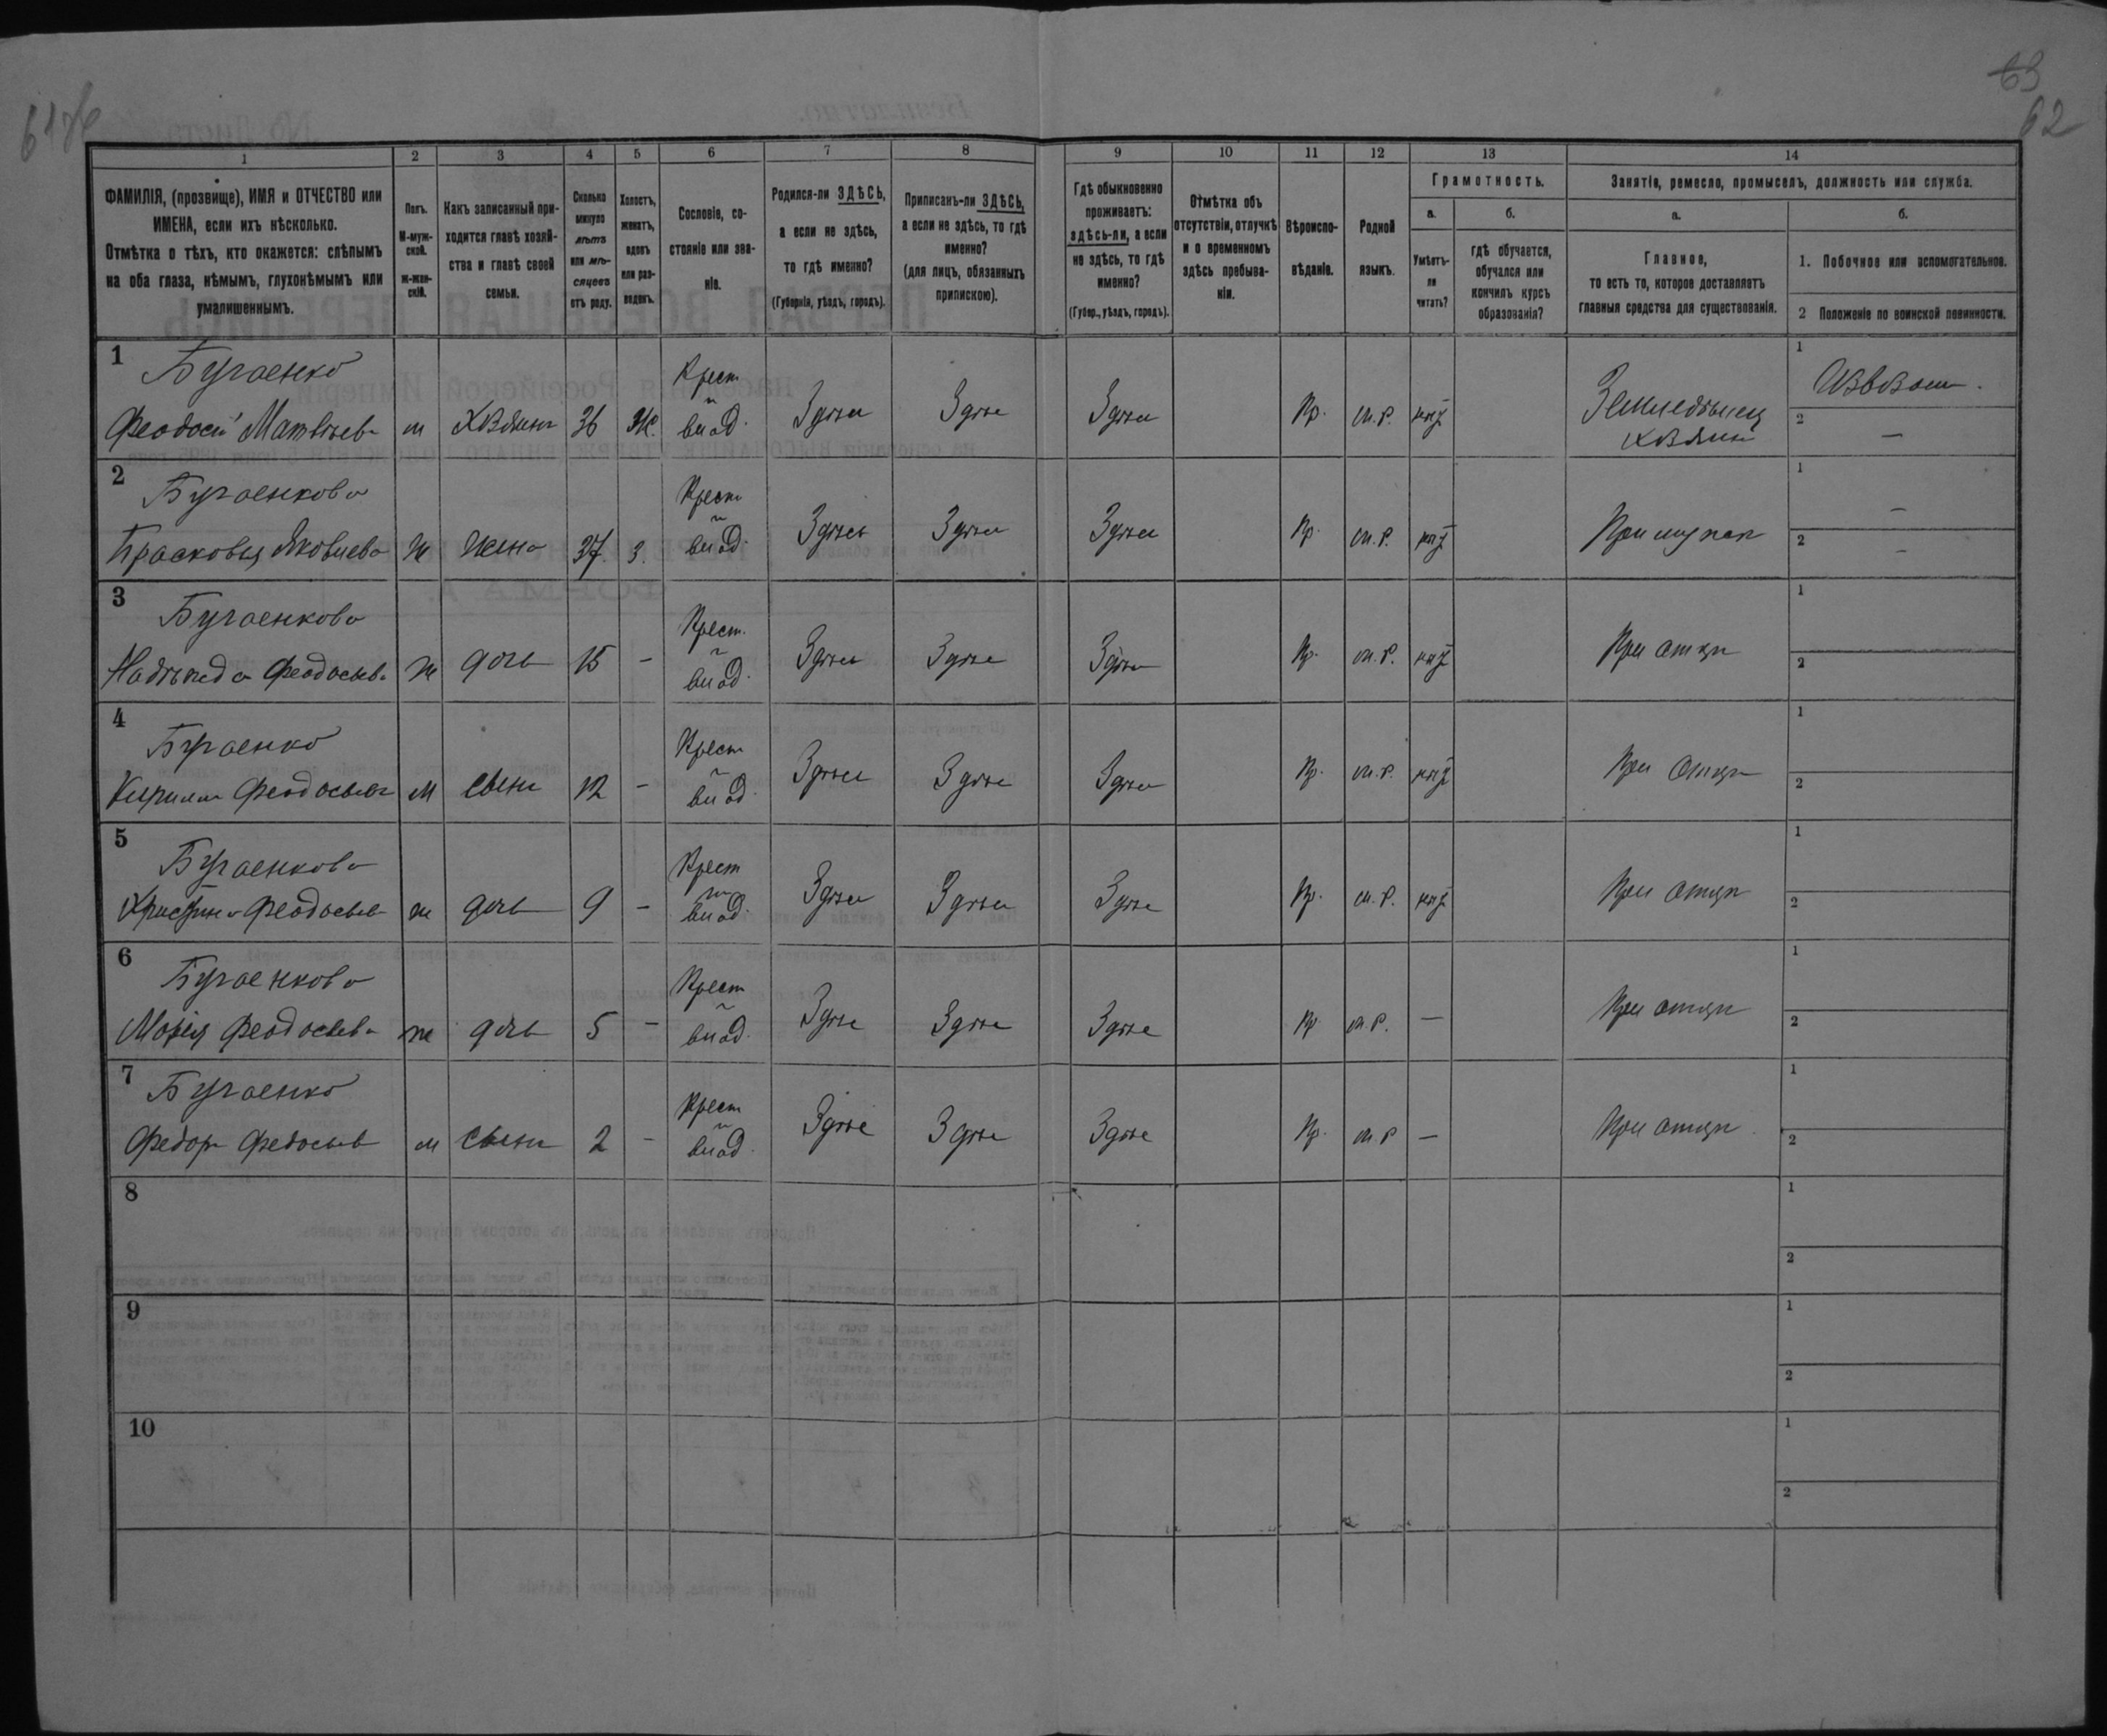 63
62
1 2 3 4 5 6 7 8 9 10 11 12 13 14
ФАМИЛІЯ, (прозвище), ИМЯ и ОТЧЕСТВО или
ИМЕНА, если ихъ нѣсколько.
Отмѣтка о тѣхъ, кто окажется: слѣпымъ
на оба глаза, нѣмымъ, глухонѣмымъ или
умалишеннымъ.
Полъ.
М-муж-
ской.
ж-жен-
скій.
Какъ записанный при-
ходится главѣ хозяй-
ства и главѣ своей
семьи.
Сколько
минуло
лѣтъ
или мѣ-
сяцевъ
отъ роду.
Холостъ,
женатъ,
вдовъ
или раз-
веденъ.
Сословіе, со-
стояніе или зва-
ніе.
Родился-ли ЗДѢСЬ,
а если не здѣсь,
то гдѣ именно?
(Губернія, уѣздъ, городъ).
Приписанъ-ли ЗДѢСЬ,
а если не здѣсь, то гдѣ
именно?
(для лицъ, обязанныхъ
припискою).
Гдѣ обыкновенно
проживаетъ:
здѣсь-ли, а если
не здѣсь, то гдѣ
именно?
(Губер., уѣздъ, городъ).
Отмѣтка объ
отсутствіи, отлучкѣ
и о временномъ
здѣсь пребыва-
ніи.
Вѣроиспо-
вѣданіе.
Родной
языкъ.
Грамотность.
а.
Умѣетъ-
ли
читать?
б.
гдѣ обучается,
обучался или
кончилъ курсъ
образованія?
Занятіе, ремесло, промыселъ, должность или служба.
а.
Главное,
то есть то, которое доставляетъ
главныя средства для существованія.
б.
1. Побочное или вспомогательное.
2 Положеніе по воинской повинности.
1 Бугаенко
Феодосій Матвѣев м Хозяинъ 36 Ж. Крест. влад. Здѣсь Здѣсь Здѣсь Пр. м.р. Земледѣлец
хозяинъ
1
2 —
2 Бугаенкова
Прасковья Яковлева ж жена 37. з. Крест. влад. Здѣсь Здѣсь Здѣсь Пр. м.р. При мужѣ
1 —
2 —
3 Бугаенкова
Надѣжда Феодосьев. ж дочь 15 — Крест. влад. Здѣсь Здѣсь Здѣсь Пр. м.р. При отцѣ
1
2
4 Бугаенко
Кирилл Феодосьев м сынъ 12 — Крест влад. Здѣсь Здѣсь Здѣсь Пр. м.р. При отцѣ
1
2
5 Бугаенкова
Христина Феодосьев ж дочь 9 — Крест влад. Здѣсь Здѣсь Здѣсь Пр. м.р. При отцѣ
1
2
6 Бугаенкова
Марія Феодосьев. ж дочь 5 — Крест влад. Здѣсь Здѣсь Здѣсь Пр м.р. — При отцѣ
1
2
7 Бугаенко
Федоръ Федосьев м сынъ 2 — Крест влад. Здѣсь Здѣсь Здѣсь Пр. м.р — При отцѣ
1
2
8
1
2
9
1
2
10
1
2